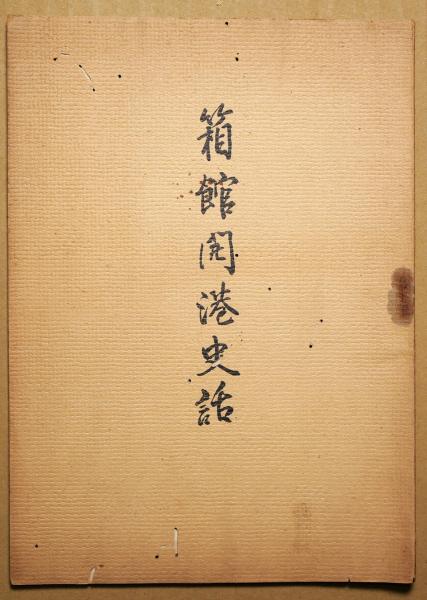 箱館開港史話